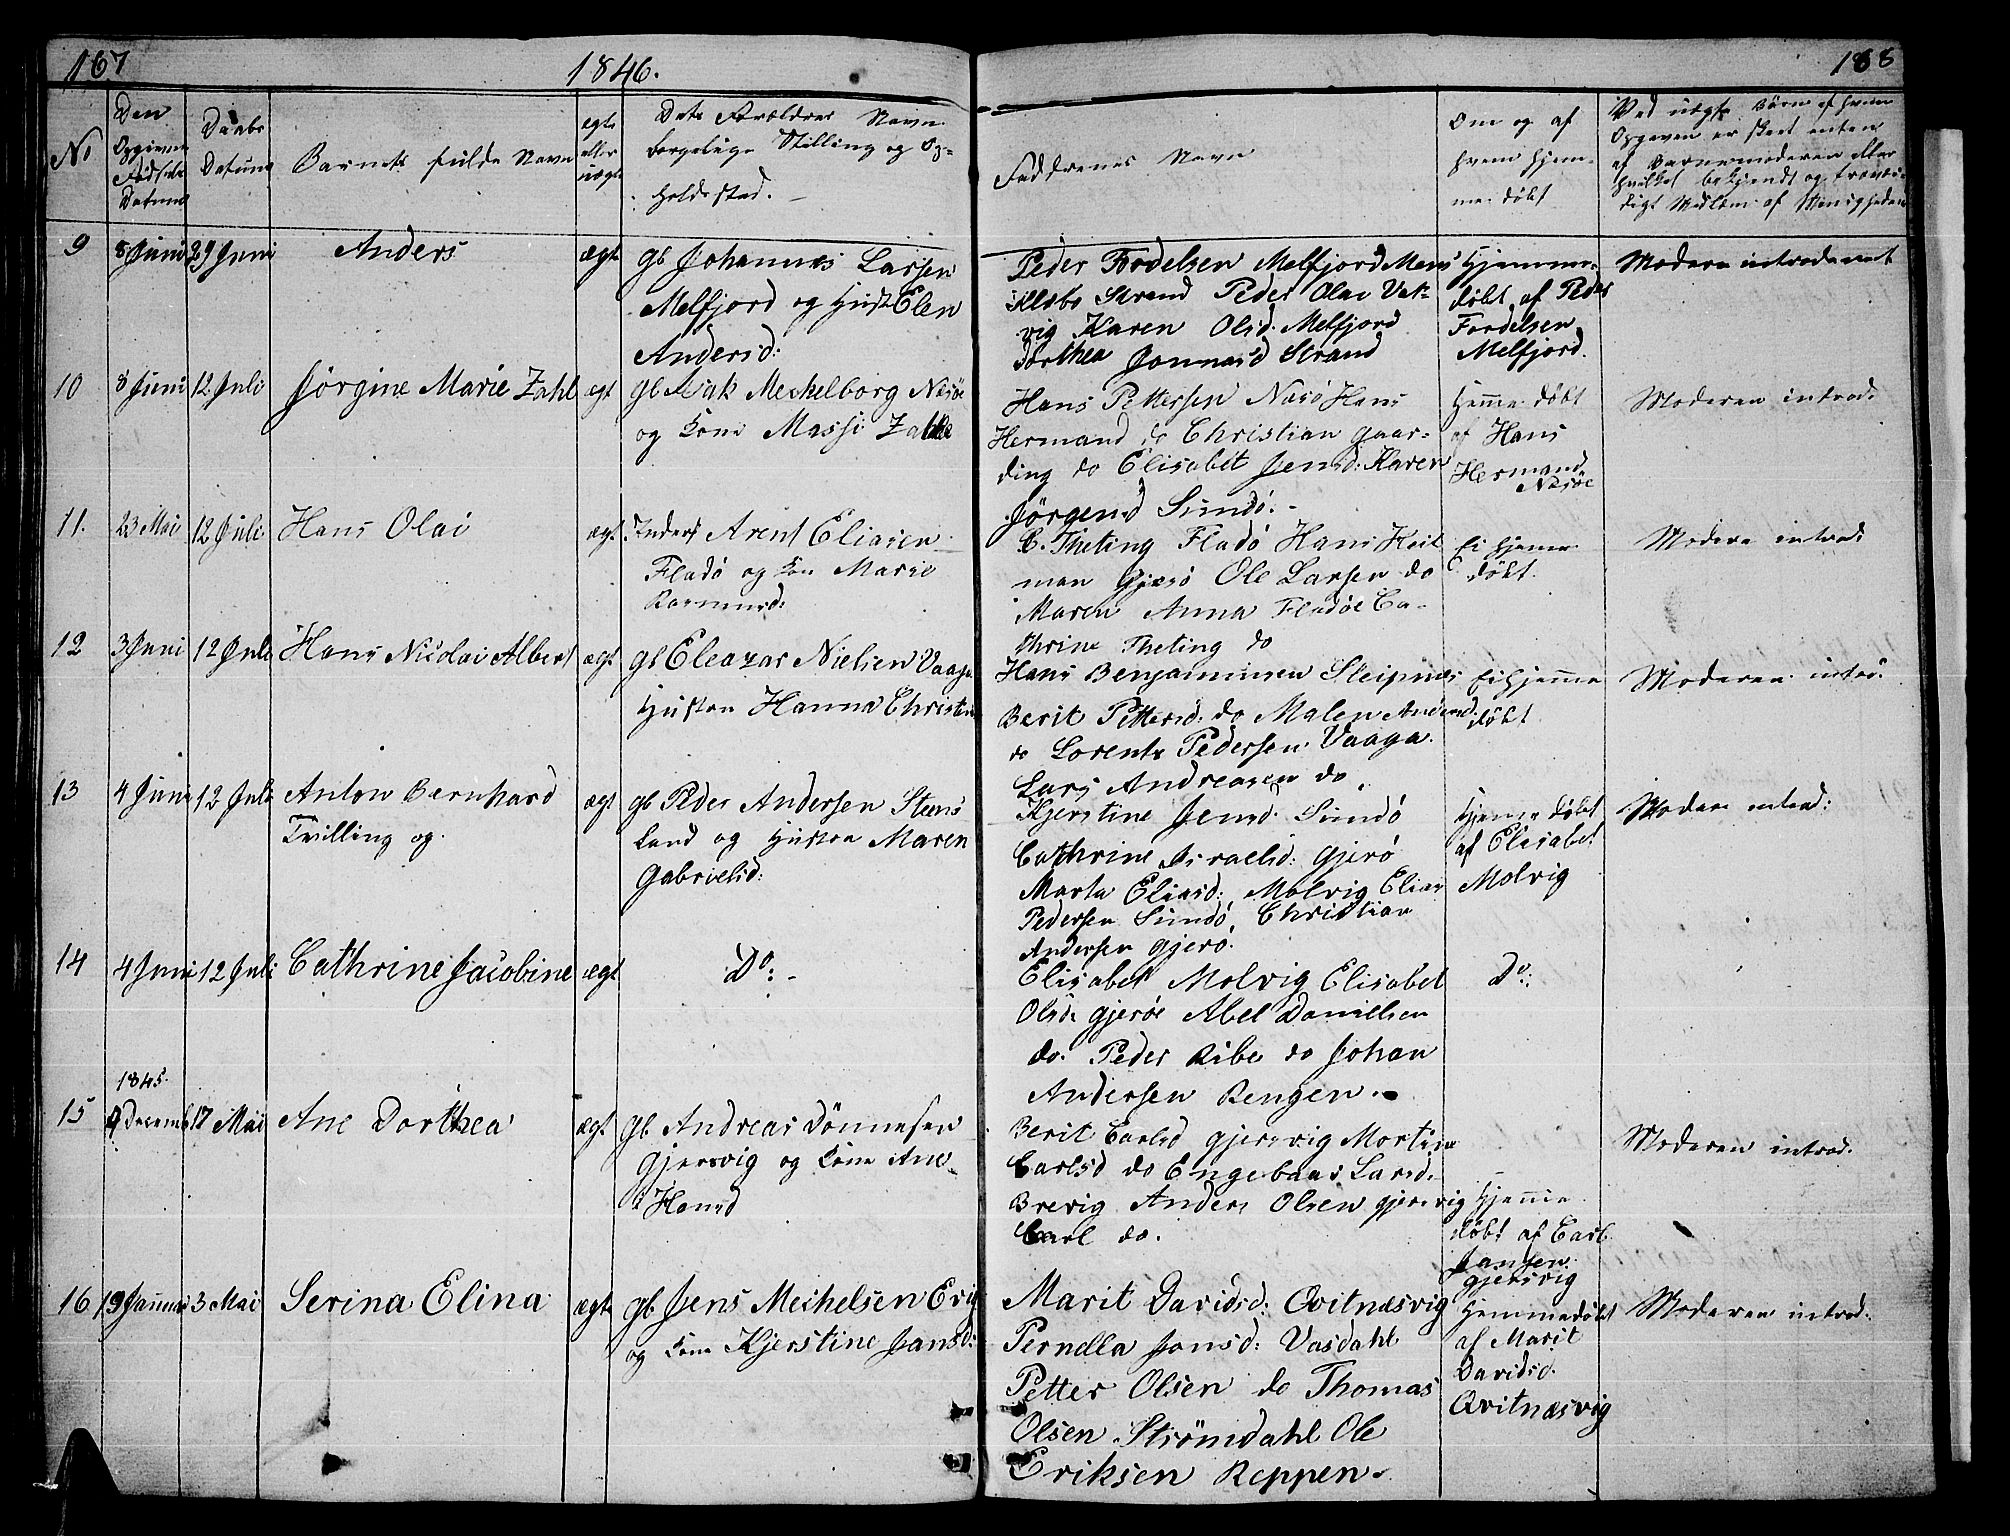 167
1846.
188
No
Den Opgivne Fødsels Datum
Daabs Datum
Barnets fulde Navn
ægte eller uægte
Dets Forældres Navn
borgelige Stilling og Op-
holdssted.
Faddrenes Navn
Om og af
hvem hjem-
me døbt
Ved uægte Børn af hvem
Opgiven er skeet enten
af Barnemoderen eller
hvilket bekjendt og troevær-
digt Medlem af Menigheden
9 8 Juni 29 Juni Anders ægt
gb Johannes Larsen
Melfjord og Hust Elen
Andersd:
Peder Fordelsen Melfjord Mons
Strand Peder Olai
vig Karen Olsd. Melfjord
Dorthea Jonnasd Strand
Hjemme-
døbt af Peder
Fordelsen
Melfjord.
Moderen introduceret
10 8 Juni 12 Juli Jørgine Marie Zahl ægt
gb Isak Meckelborg Nesøe
og Kone Massi Zahl
Hans Pettersen Nesö Hans
Hermand do Christian Gaar-
ding do Elisabet Jensd: Karen
Jörgensd Sundö. -
Hjemme døbt
af Hans
Hermand
Nesöe
Moderen introd:
11. 23 Mai 12 Juli Hans Olai ægt
Inderst Arent Eliasen
Fladö og Kon Marie
Rasmusd:
C. Theting Fladö Hans Heit
man Gjesö Ole Larsen do
Maren Anna Fladöe Ca-
thrine Theting do
Ei hjeme
døbt.
Modern introd:
12 3 Juni 12 Juli Hans Nicolai Albert ægt
gb Eleazar Nielsen Vaaga
Hustru Hanna Christin
Hans Benjaminsen Sleipnes
Berit Pettersd: do Malen Andersd.
do Lorents Pedersen Vaaga.
Lars Andreasen do.
Ei hjemme
døbt
Moderen introd:
13 4 Juni 12 Juli Anton Bernhard ægt
Tvilling og.
gb Peder Andersen Stens
Land og Hustru Maren
Gabrielsd:
Kjerstine Jensd. Sundö
Cathrine Israelsd: Gjerö
Marta Eliasd: Molvig Elias
Pedersen Sundö, Christian
Andersen Gjerö.
Hjeme døbt
af Elisabet
Molvig
Modern introd:
14 4 Juni 12 Juli Cathrine Jacobine ægt
Do: -
Elisabet Molvig Elisabet
Olsd: Gjeröe Abel Danielsen
do. Peder Ribe do Johan
Andersen Rengen. -
Do:
1845.
15 Decemb 17 Mai Ane Dorthea ægt
gb. Andreas Dönnesen
Gjersvig og Kone Ane
Hansd
Berit Carlsd Gjersvig Mortine
Carlsd do Engebaar Larsd.
Brevig Anders Olsen Gjersvig
Carl do.
Hjemme
døbt af Carl
Jansen
Gjersvig
Moderen introd.
16 19 Januar 3 Mai Serina Elina ægte
gb. Jens Mechelsen Evig
og Kone Kjerstine Jansd:
Marit Davidsd: Qvitnæsvig
Pernella Jonsd: Vasdahl
Petter Olsen do Thomas
Olsen Strömdahl Ole
Eriksen Reppen.
Hjemmedøbt
af Marit
Davidsd.
Qvitnæsvig
Moderen introd.